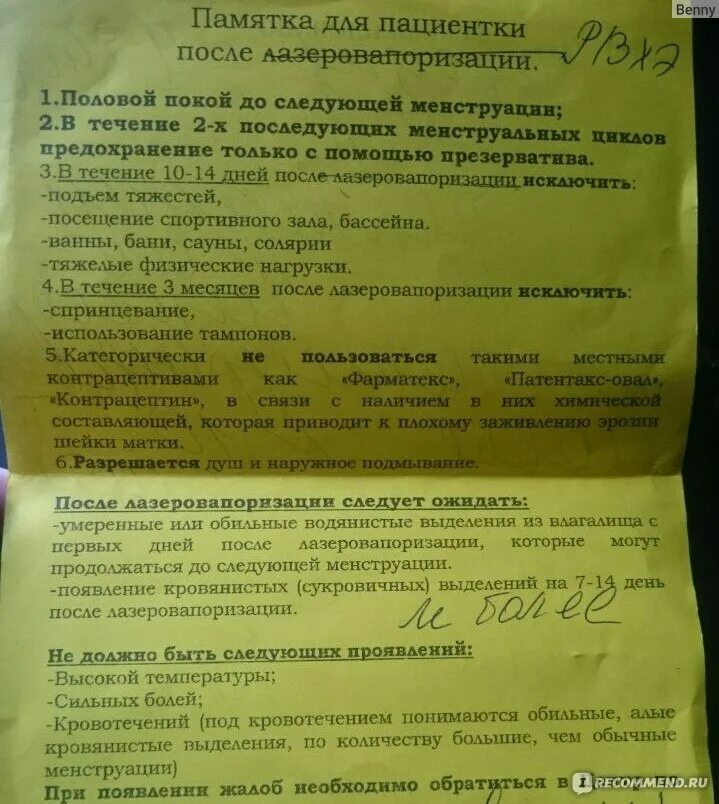 Benny
Памятка для пациентки
после лазеровапоризации. РВХЭ
1.Половой покой до следующей менструации;
2.В течение 2-х последующих менструальных циклов
предохранение только с помощью презерватива.
3.В течение 10-14 дней после лазеровапоризации исключить:
-подъем тяжестей,
-посещение спортивного зала, бассейна.
-ванны, бани, сауны, солярии
-тяжелые физические нагрузки.
4.В течение 3 месяцев после лазеровапоризации исключить:
-спринцевание,
-использование тампонов.
5.Категорически не пользоваться такими местными
контрацептивами как «Фарматекс», «Патентакс-овал»,
«Контрацептин», в связи с наличием в них химической
составляющей, которая приводит к плохому заживлению эрозии
шейки матки.
6.Разрешается душ и наружное подмывание.
После лазеровапоризации следует ожидать:
-умеренные или обильные водянистые выделения из влагалища с
первых дней после лазеровапоризации, которые могут
продолжаться до следующей менструации.
-появление кровянистых (сукровичных) выделений на 7-14 день
после лазеровапоризации. и более
Не должно быть следующих проявлений:
-Высокой температуры;
-Сильных болей;
-Кровотечений (под кровотечением понимаются обильные, алые
кровянистые выделения, по количеству большие, чем обычные
менструации)
При появлении жалоб необходимо обратиться в
IRECOMMEND.RU